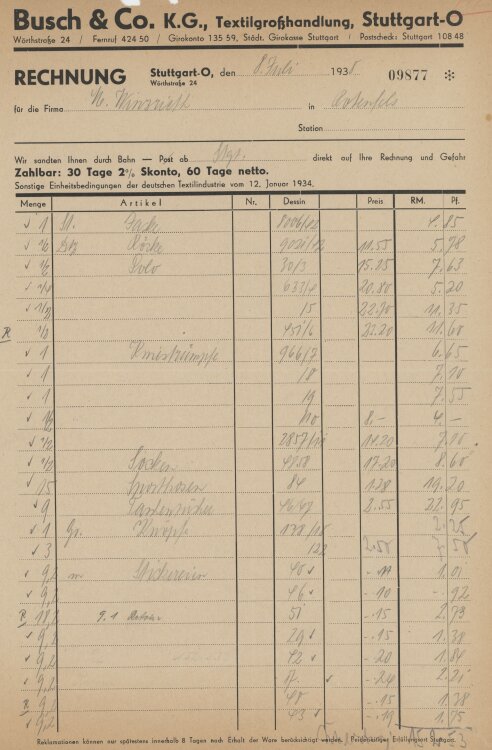 Busch & Co. K.G., Textilgroßhandlung, Stuttgart-O
Wörthstraße 24 / Fernruf 424 50 / Girokonto 135 59, Städt. Girokasse Stuttgart / Postscheck: Stuttgart 108 48
RECHNUNG Stuttgart-O, den 8. Juli 1938 09877 ✻
Wörthstraße 24
für die Firma in Rotenfels
Station
Wir sandten Ihnen durch Bahn — Post ab Stgt. direkt auf Ihre Rechnung und Gefahr
Zahlbar: 30 Tage 2% Skonto, 60 Tage netto.
Sonstige Einheitsbedingungen der deutschen Textilindustrie vom 12. Januar 1934.
Menge Artikel Nr. Dessin Preis RM. Pf.
1 St. Jacke 8006/42 4.85
1/2 Dtz Röcke 11.55 5.78
1/2 Polo 30/3 15.25 7.63
1/4 633/4 20.80 5.20
1/2 15 22.70 11.35
R 1/2 23.20 11.60
1 Kniestrümpfe 966/7 6.65
1 /8 7.10
1 /9 7.55
1/2 /10 8.- 4.-
1/2 14.20 7.10
1/2 Socken 17.20 8.60
15 Sporthosen 84 1.28 19.20
9 2.55 22.95
1 Gr. Knöpfe 2.25
3 122 2.50 7.50
9,2 m 40 -.11 1.01
9,2 46 -.10 -.92
R 18,2 51 -.15 2.73
9,2 29 -.15 1.38
9,2 42 -.20 1.84
9,2 17 -.24 2.21
R 9,2 40 -.15 1.38
9,2 43 -.19 1.75
Reklamationen können nur spätestens innerhalb 8 Tagen nach Erhalt der Ware berücksichtigt werden. Beiderseitiger Erfüllungsort Stuttgart.